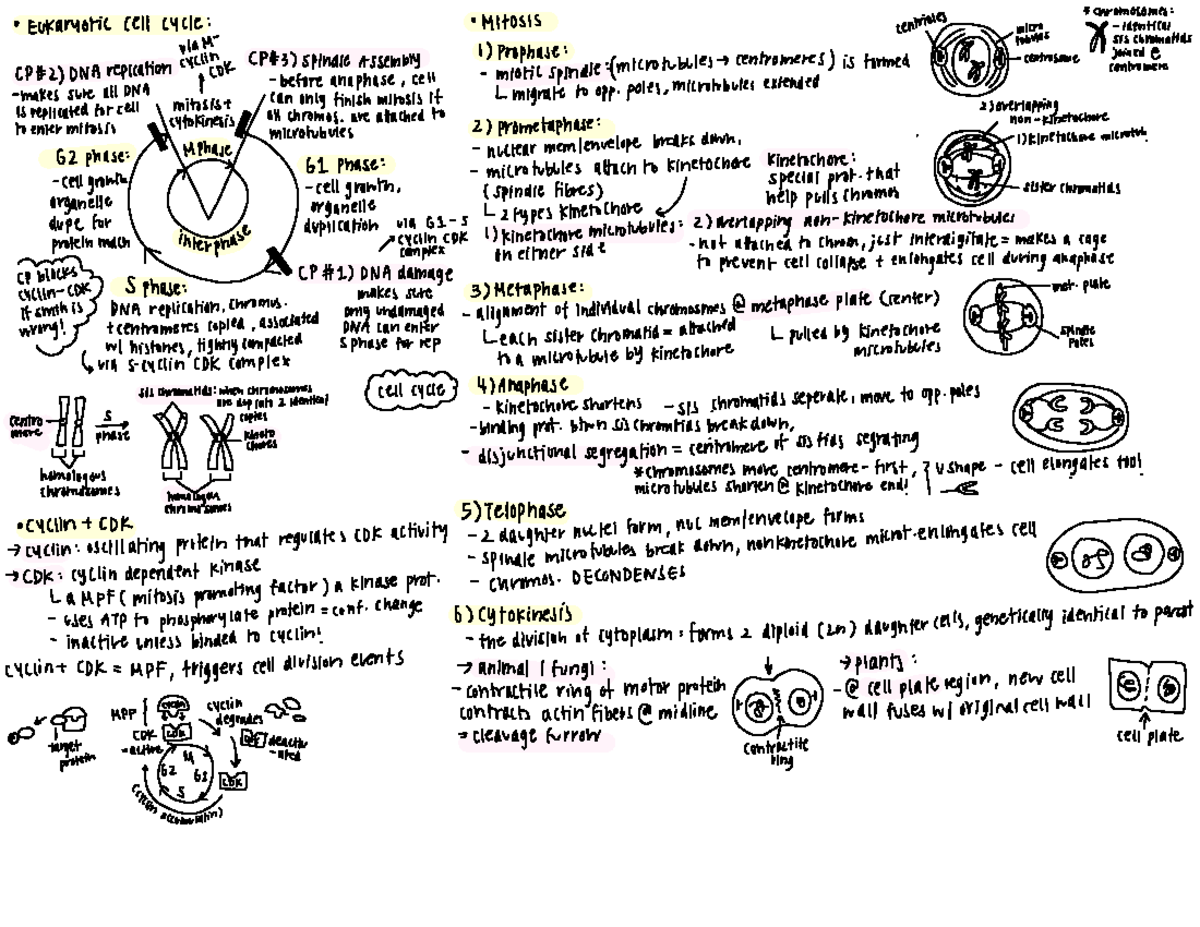 • Eukaryotic cell cycle:
via M-
cyclin
CDK
CP#2) DNA replication
-makes sure all DNA
is replicated for cell
to enter mitosis
mitosis+
cytokinesis
CP#3) Spindle Assembly
- before anaphase, cell
can only finish mitosis if
all chromos. are attached to
microtubules
M phase
interphase
G2 phase:
-cell growth
organelle
dupe for
protein mach
G1 Phase:
-cell growth,
organelle
duplication
via G1-S
cyclin CDK
complex
CP #1) DNA damage
makes sure
only undamaged
DNA can enter
S phase for rep
CP blocks
cyclin-CDK
if smth is
wrong!
S phase:
DNA replication, chromos.
+centromeres copied, associated
w/ histones, tightly compacted
↳ via S-cyclin CDK complex
cell cycle
sis chromatids: when chromosomes
are duplicate 2 identical
copies
centro
mere
S
phase
kineto
chores
homologous
chromosomes
homologous
chromosomes
• cyclin + CDK
→ cyclin: oscillating protein that regulates CDK activity
→ CDK: cyclin dependent kinase
↳ a MPF (mitosis promoting factor) a kinase prot.
- uses ATP to phosphorylate protein = conf. change
- inactive unless binded to cyclin!
cyclin + CDK = MPF, triggers cell division events
target
protein
MPF
cyclin
CDK
CDK
-active
cyclin
degrades
deactiv
-ated
CDK
M
G2
G1
S
• Mitosis
1) Prophase:
- miotic spindle:(microtubules → centromeres) is formed
↳ migrate to opp. poles, microtubules extended
centrioles
micro
tubules
centrosome
* chromosomes:
- identical
sis chromatids
joined @
centromere
2) Prometaphase:
- nuclear mem/envelope breaks down,
- microtubules attach to kinetochore
(spindle fibres)
↳ 2 types kinetochore
1) kinetochore microtubules:
on either side
Kinetochore:
special prot. that
help pulls chromos
2) overlapping non-kinetochore microtubules
-not attached to chrom, just interdigitate = makes a cage
to prevent cell collapse + enlongates cell during anaphase
2) overlapping
non-kinetochore
1) kinetochore microtub.
sister chromatids
3) Metaphase:
- alignment of individual chromosomes @ metaphase plate (center)
↳ each sister chromatid = attached
to a microtubule by kinetochore
↳ pulled by kinetochore
microtubules
met. plate
spindle
poles
4) Anaphase
- kinetochore shortens - sis chromatids seperate, move to opp. poles
-binding prot. btwn sis chromtids break down,
- disjunctional segregation = centromere of sis tids segrating
*chromosomes move centromere-first,
microtubules shorten @ kinetochore end!
V shape - cell elongates too!
5) Telophase
- 2 daughter nuclei form, nuc mem/envelope forms
- spindle microtubules break down, nonkinetochore microt. enlongates cell
- chromos. DECONDENSES
6) Cytokinesis
- the division of cytoplasm: forms 2 diploid (2n) daughter cells, genetically identical to parent
→ animal (fung):
- contractile ring of motor protein
contracts actin fibers @ midline
= cleavage furrow
contractile
ring
→ plants:
- @ cell plate region, new cell
wall fuses w/ original cell wall
cell plate